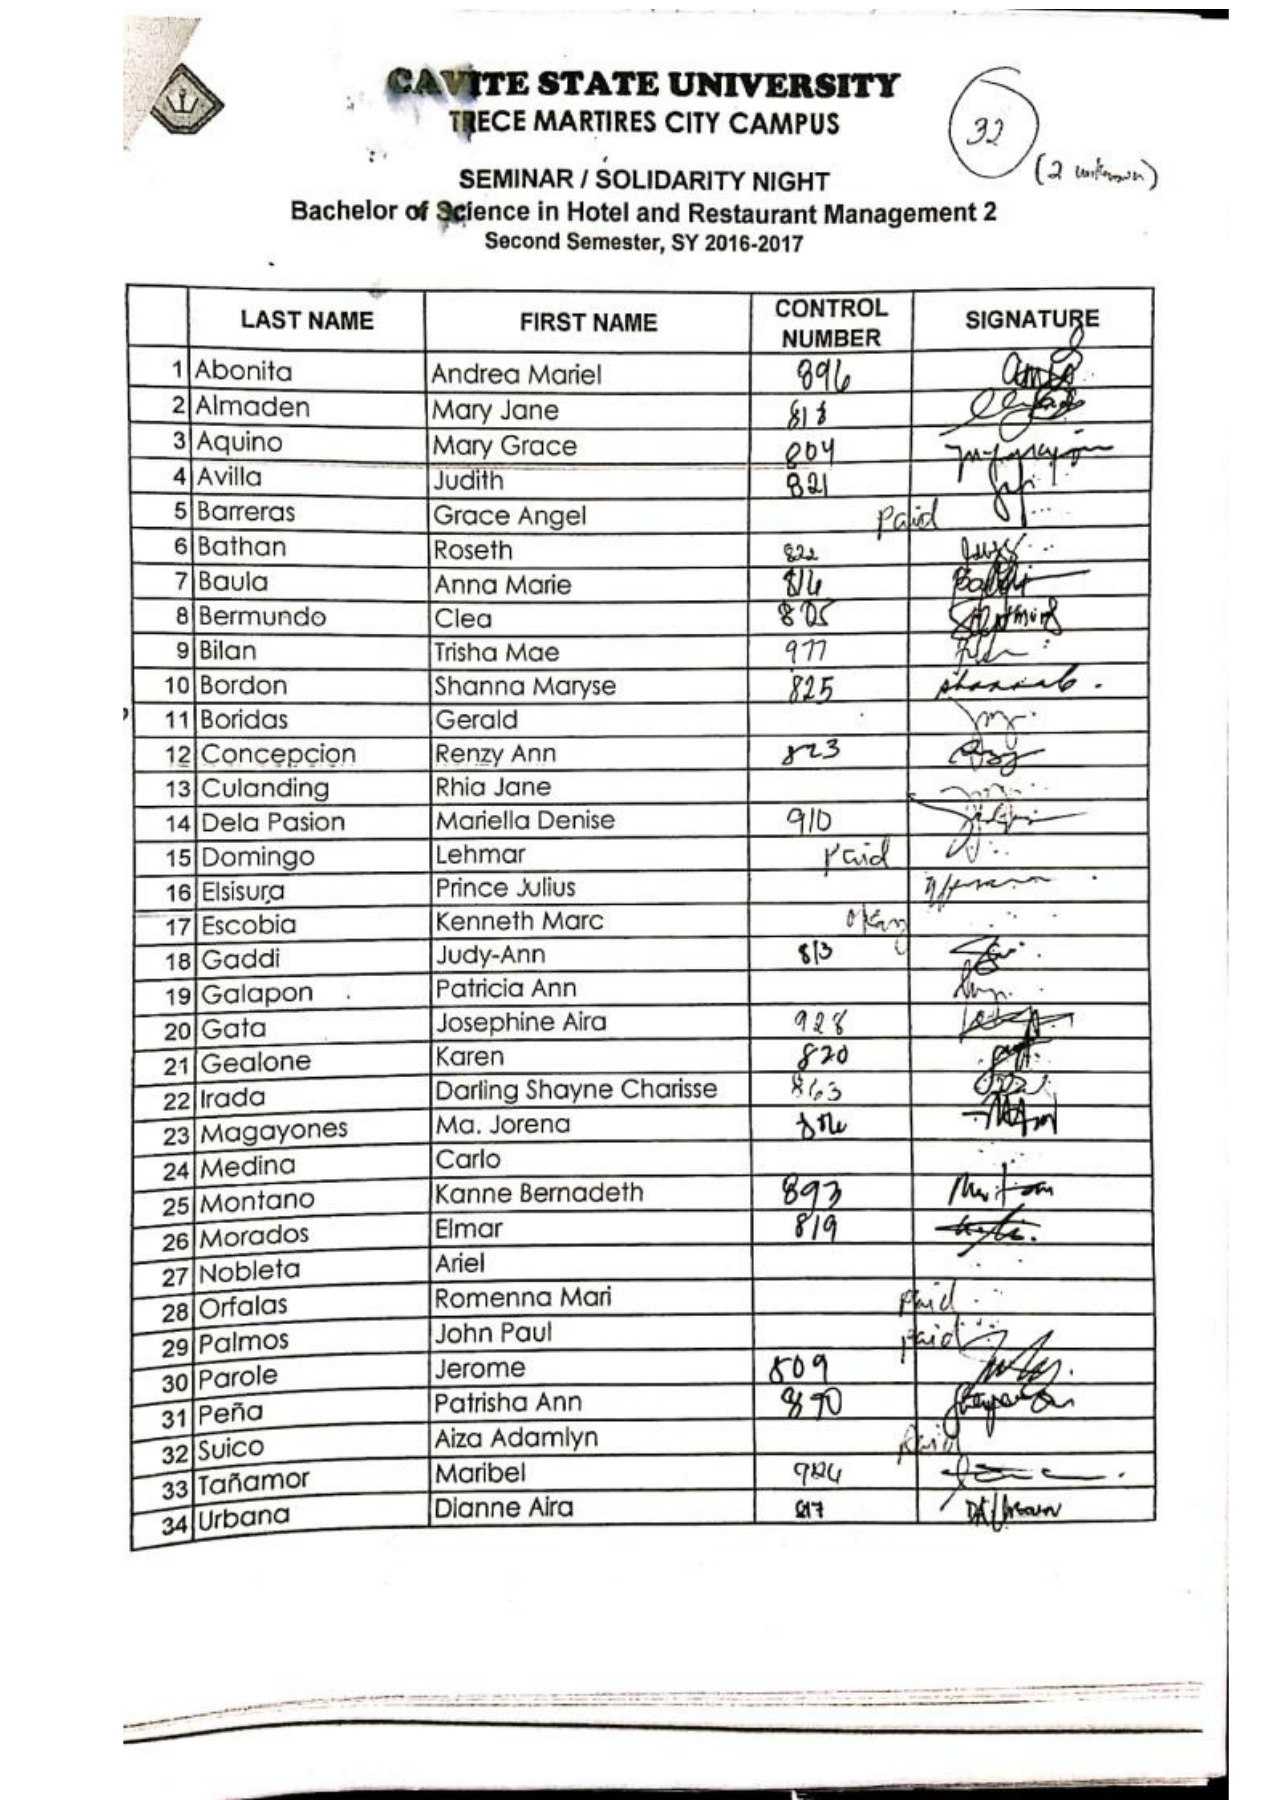 CAVITE STATE UNIVERSITY
TRECE MARTIRES CITY CAMPUS
32
(2 unknown)
SEMINAR / SOLIDARITY NIGHT
Bachelor of Science in Hotel and Restaurant Management 2
Second Semester, SY 2016-2017
LAST NAME FIRST NAME CONTROL NUMBER SIGNATURE
1 Abonita Andrea Mariel 896
2 Almaden Mary Jane 818
3 Aquino Mary Grace 804
4 Avilla Judith 821
5 Barreras Grace Angel paid
6 Bathan Roseth 822
7 Baula Anna Marie 816
8 Bermundo Clea 805
9 Bilan Trisha Mae 977
10 Bordon Shanna Maryse 825
11 Boridas Gerald
12 Concepcion Renzy Ann 823
13 Culanding Rhia Jane
14 Dela Pasion Mariella Denise 910
15 Domingo Lehmar paid
16 Elsisura Prince Julius
17 Escobia Kenneth Marc okay
18 Gaddi Judy-Ann 813
19 Galapon Patricia Ann
20 Gata Josephine Aira 928
21 Gealone Karen 820
22 Irada Darling Shayne Charisse 863
23 Magayones Ma. Jorena
24 Medina Carlo
25 Montano Kanne Bernadeth 893
26 Morados Elmar 819
27 Nobleta Ariel
28 Orfalas Romenna Mari paid
29 Palmos John Paul paid
30 Parole Jerome 809
31 Peña Patrisha Ann 870
32 Suico Aiza Adamlyn paid
33 Tañamor Maribel
34 Urbana Dianne Aira 817